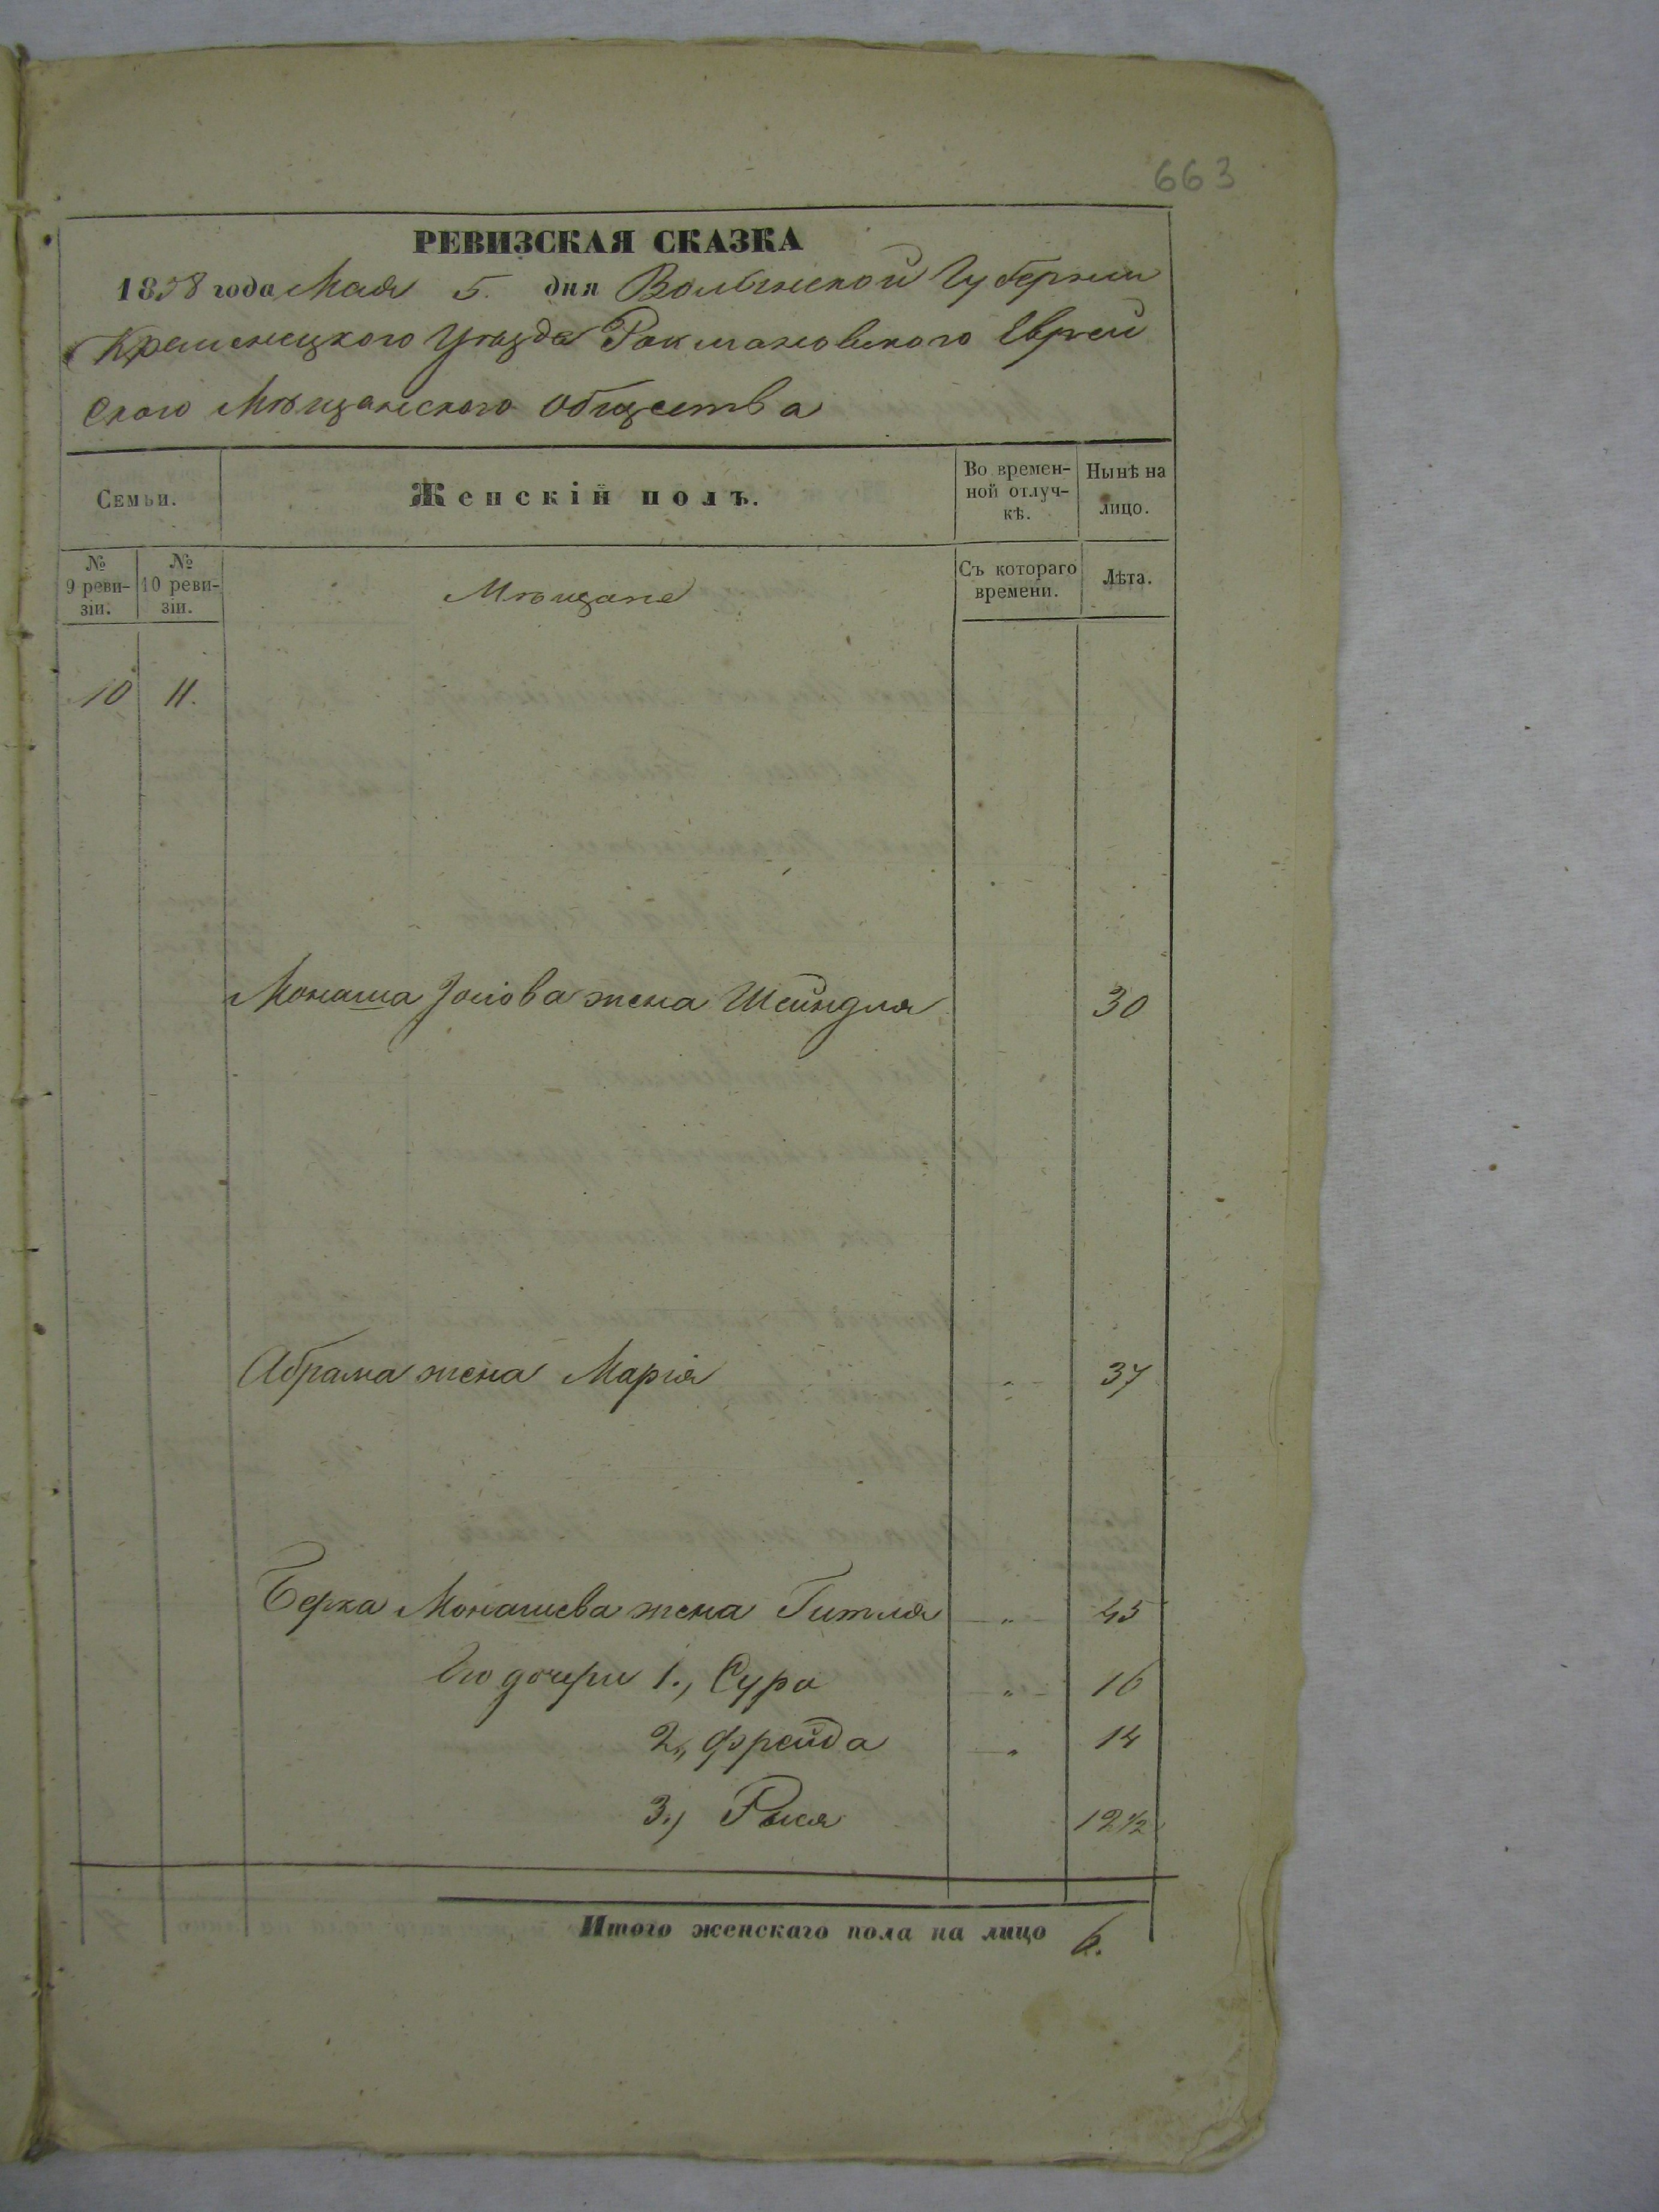 663
РЕВИЗСКАЯ СКАЗКА
1858 года Мая 5. дня Волынской Губернии
Кременецкого Уѣзда Рахмановского Еврей
ского Мѣщанского общества
Семьи.
Женскій полъ.
Во времен-
ной отлуч-
кѣ.
Нынѣ на
лицо.
№
9 реви-
зіи.
№
10 реви-
зіи.
Мѣщане
Съ котораго
времени.
Лѣта.
10 11.
Монаша Іосіова жена Шейндля 30
Абрама жена Марія " 37
Берка Монашева жена Гитля " 45
Его дочери 1., Сура " 16
2., Фрейда " 14
3., Рыся 12 1/2
Итого женскаго пола на лицо 6.